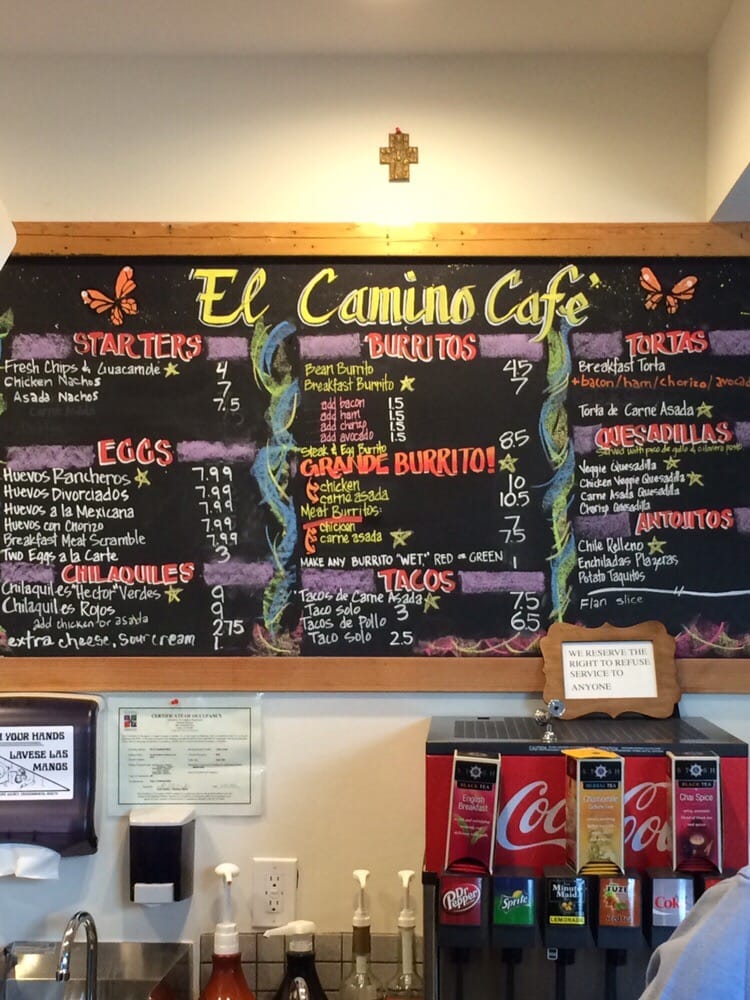 El Camino Café
STARTERS
Fresh Chips & Guacamole 4
Chicken Nachos 7
Asada Nachos 7.5
EGGS
Huevos Rancheros 7.99
Huevos Divorciados 7.99
Huevos a la Mexicana 7.99
Huevos con Chorizo 7.99
Breakfast Meat Scramble 7.99
Two Eggs a la Carte 3
CHILAQUILES
Chilaquiles "Hector" Verdes 9
Chilaquiles Rojos 9
add chicken or asada 2.75
extra cheese, sour cream 1.
BURRITOS
Bean Burrito 4.5
Breakfast Burrito 7
add bacon 1.5
add ham 1.5
add chorizo 1.5
add avocado 1.5
Steak & Egg Burrito 8.5
GRANDE BURRITO!
chicken 10
carne asada 10.5
Meat Burritos:
chicken 7
carne asada 7.5
MAKE ANY BURRITO "WET" RED OR GREEN 1
TACOS
Tacos de Carne Asada 7.5
Taco solo 3
Tacos de Pollo 6.5
Taco solo 2.5
TORTAS
Breakfast Torta
+bacon/ham/chorizo/avocado
Torta de Carne Asada
QUESADILLAS
Served with pico de gallo &
Veggie Quesadilla
Chicken Veggie Quesadilla
Carne Asada Quesadilla
Chorizo Quesadilla
ANTOJITOS
Chile Relleno
Enchiladas Placeras
Potato Taquitos
Flan slice
WE RESERVE THE
RIGHT TO REFUSE
SERVICE TO
ANYONE
YOUR HANDS
LAVESE LAS
MANOS
CERTIFICATE OF OCCUPANCY
CAUTION
STASH
BLACK TEA
English
Breakfast
STASH
HERBAL TEA
Chamomile
STASH
BLACK TEA
Chai Spice
Coc
Co
Dr Pepper
Sprite
Minute
Maid
LEMONADE
FUZE
Coke